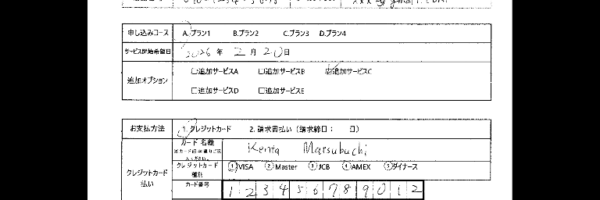 申し込みコース A.プラン1 B.プラン2 C.プラン3 D.プラン4
サービス開始希望日 2026 年 2 月 20 日
追加オプション □追加サービスA □追加サービスB ☑追加サービスC
□追加サービスD □追加サービスE
お支払方法 1.クレジットカード 2.請求書払い（請求締日： 日）
カード名義 Kenta Matsubuchi
クレジットカード払い
クレジットカード種別 ①VISA ②Master ③JCB ④AMEX ⑤ダイナース
カード番号 1 2 3 4 5 6 7 8 9 0 1 2